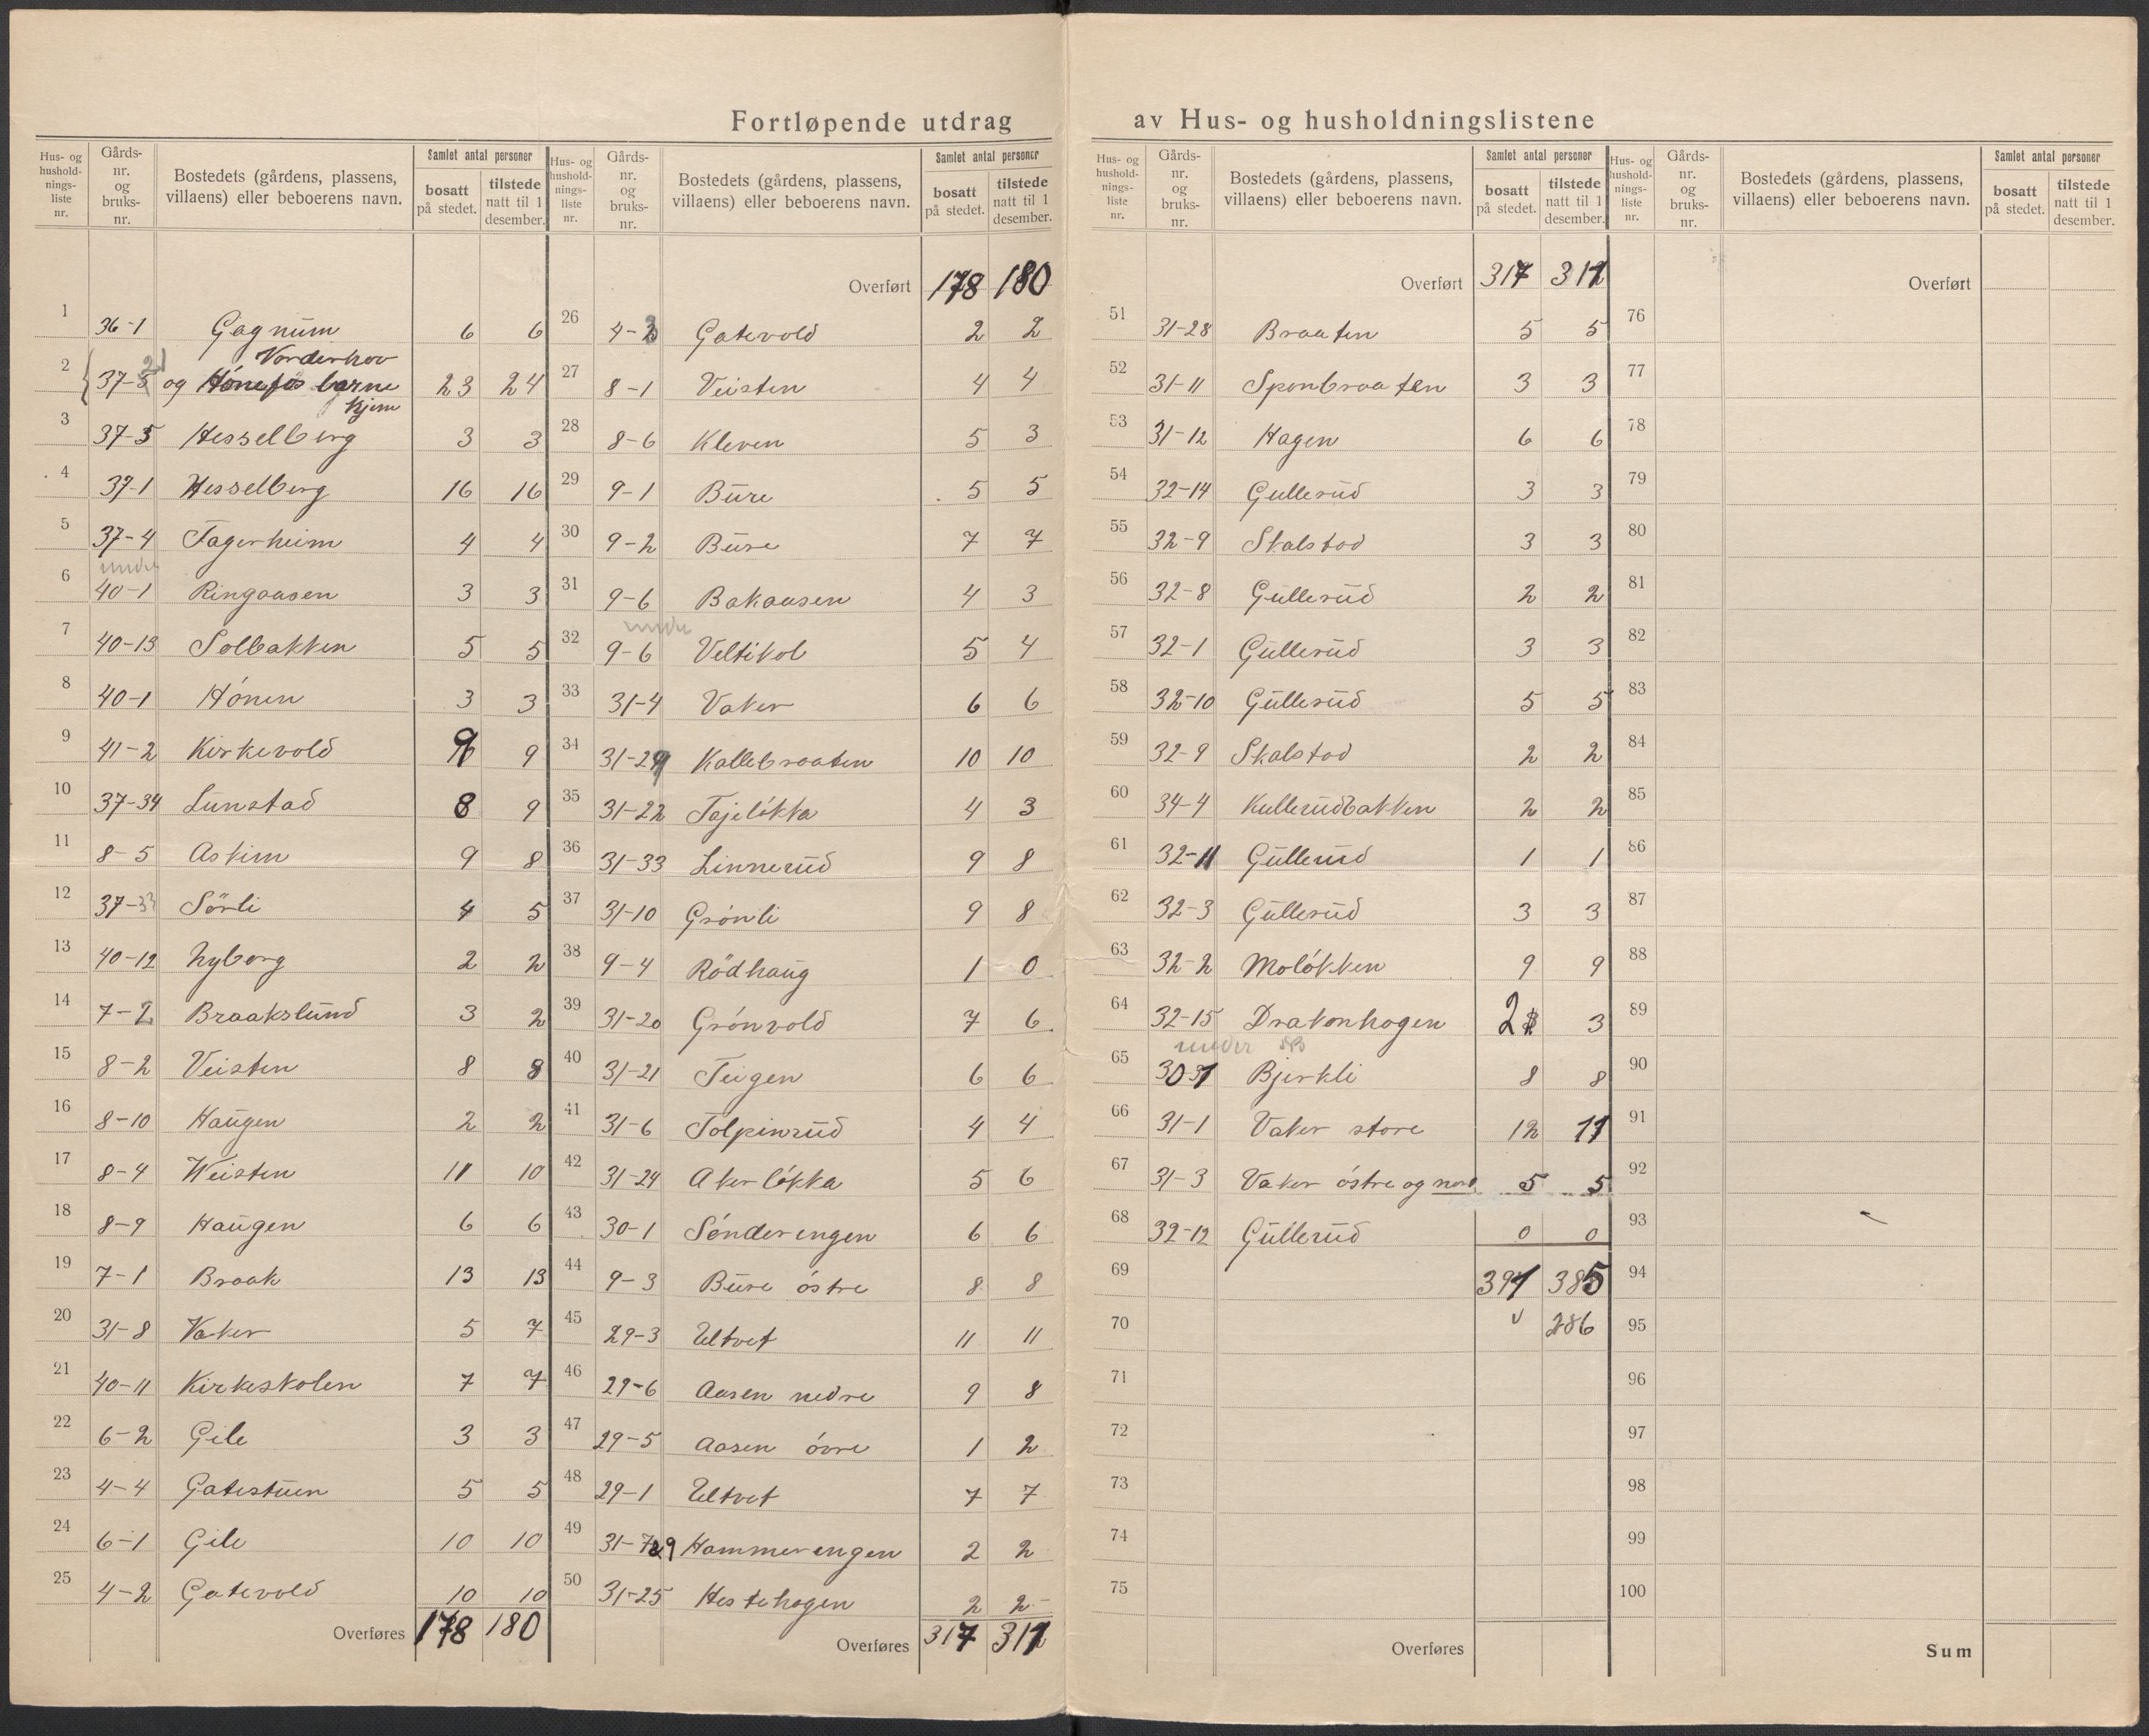 Fortløpende utdrag av Hus- og husholdningslistene
Hus- og husholdningsliste nr. | Gårds-nr. og bruks-nr. | Bostedets (gårdens, plassens, villaens) eller beboerens navn. | Samlet antal personer | bosatt på stedet. | tilstede natt til 1 desember.
1 36-1 Gagnum 6 6
2 37-21 Norderhov og Hönefos barnehjem 23 24
3 37-5 Hesselberg 3 3
4 37-1 Hesselberg 16 16
5 37-4 Fagerheim 4 4
6 under 40-1 Ringaasen 3 3
7 40-13 Solbakken 5 5
8 40-1 Hónen 3 3
9 41-2 Kirkevold 9 9
10 37-34 Lunstad 8 9
11 8-5 Askim 9 8
12 37-33 Sörli 4 5
13 40-12 Nyborg 2 2
14 7-2 Braakslund 3 2
15 8-2 Veisten 8 8
16 8-10 Haugen 2 2
17 8-4 Weisten 11 10
18 8-9 Haugen 6 6
19 7-1 Braak 13 13
20 31-8 Vaker 5 7
21 40-11 Kirkeskolen 7 7
22 6-2 Gile 3 3
23 4-4 Gatestuen 5 5
24 6-1 Gile 10 10
25 4-2 Gatevold 10 10
Overføres 178 180
Hus- og husholdningsliste nr. | Gårds-nr. og bruks-nr. | Bostedets (gårdens, plassens, villaens) eller beboerens navn. | Samlet antal personer | bosatt på stedet. | tilstede natt til 1 desember.
Overført 178 180
26 4-3 Gatevold 2 2
27 8-1 Veisten 4 4
28 8-6 Kleven 5 3
29 9-1 Bure 5 5
30 9-2 Bure 7 7
31 9-6 Bakaasen 4 3
32 under 9-6 Veltikol 5 4
33 31-4 Vaker 6 6
34 31-29 Kallebraaten 10 10
35 31-22 Tajelókka 4 3
36 31-33 Linnerud 9 8
37 31-10 Grónli 9 8
38 9-4 Rödhaug 1 0
39 31-20 Grónvold 7 6
40 31-21 Teigen 6 6
41 31-6 Tolpinrud 4 4
42 31-24 Akerlókka 5 6
43 30-1 Sónderengen 6 6
44 9-3 Bure óstre 8 8
45 29-3 Ultvet 11 11
46 29-6 Aasen nedre 9 8
47 29-5 Aasen óvre 1 2
48 29-1 Ultvet 7 7
49 31-29 Hammerengen 2 2
50 31-25 Hestehagen 2 2
Overføres 317 311
Hus- og husholdningsliste nr. | Gårds-nr. og bruks-nr. | Bostedets (gårdens, plassens, villaens) eller beboerens navn. | Samlet antal personer | bosatt på stedet. | tilstede natt til 1 desember.
Overført 317 311
51 31-28 Braaten 5 5
52 31-11 Sponbraaten 3 3
53 31-12 Hagen 6 6
54 32-14 Gullerud 3 3
55 32-9 Skalstad 3 3
56 32-8 Gullerud 2 2
57 32-1 Gullerud 3 3
58 32-10 Gullerud 5 5
59 32-9 Skalstad 2 2
60 34-4 Kullerudbakken 2 2
61 32-11 Gullerud 1 1
62 32-3 Gullerud 3 3
63 32-2 Molókken 9 9
64 32-15 Drakonhagen 2 3
65 under 30 31 Bjerkli 8 8
66 31-1 Vaker store 12 11
67 31-3 Vaker óstre og nord 5 5
68 32-12 Gullerud 0 0
69 391 385
70 286
71
72
73
74
75
Overføres
Hus- og husholdningsliste nr. | Gårds-nr. og bruks-nr. | Bostedets (gårdens, plassens, villaens) eller beboerens navn. | Samlet antal personer | bosatt på stedet. | tilstede natt til 1 desember.
Overført
76
77
78
79
80
81
82
83
84
85
86
87
88
89
90
91
92
93
94
95
96
97
98
99
100
Sum